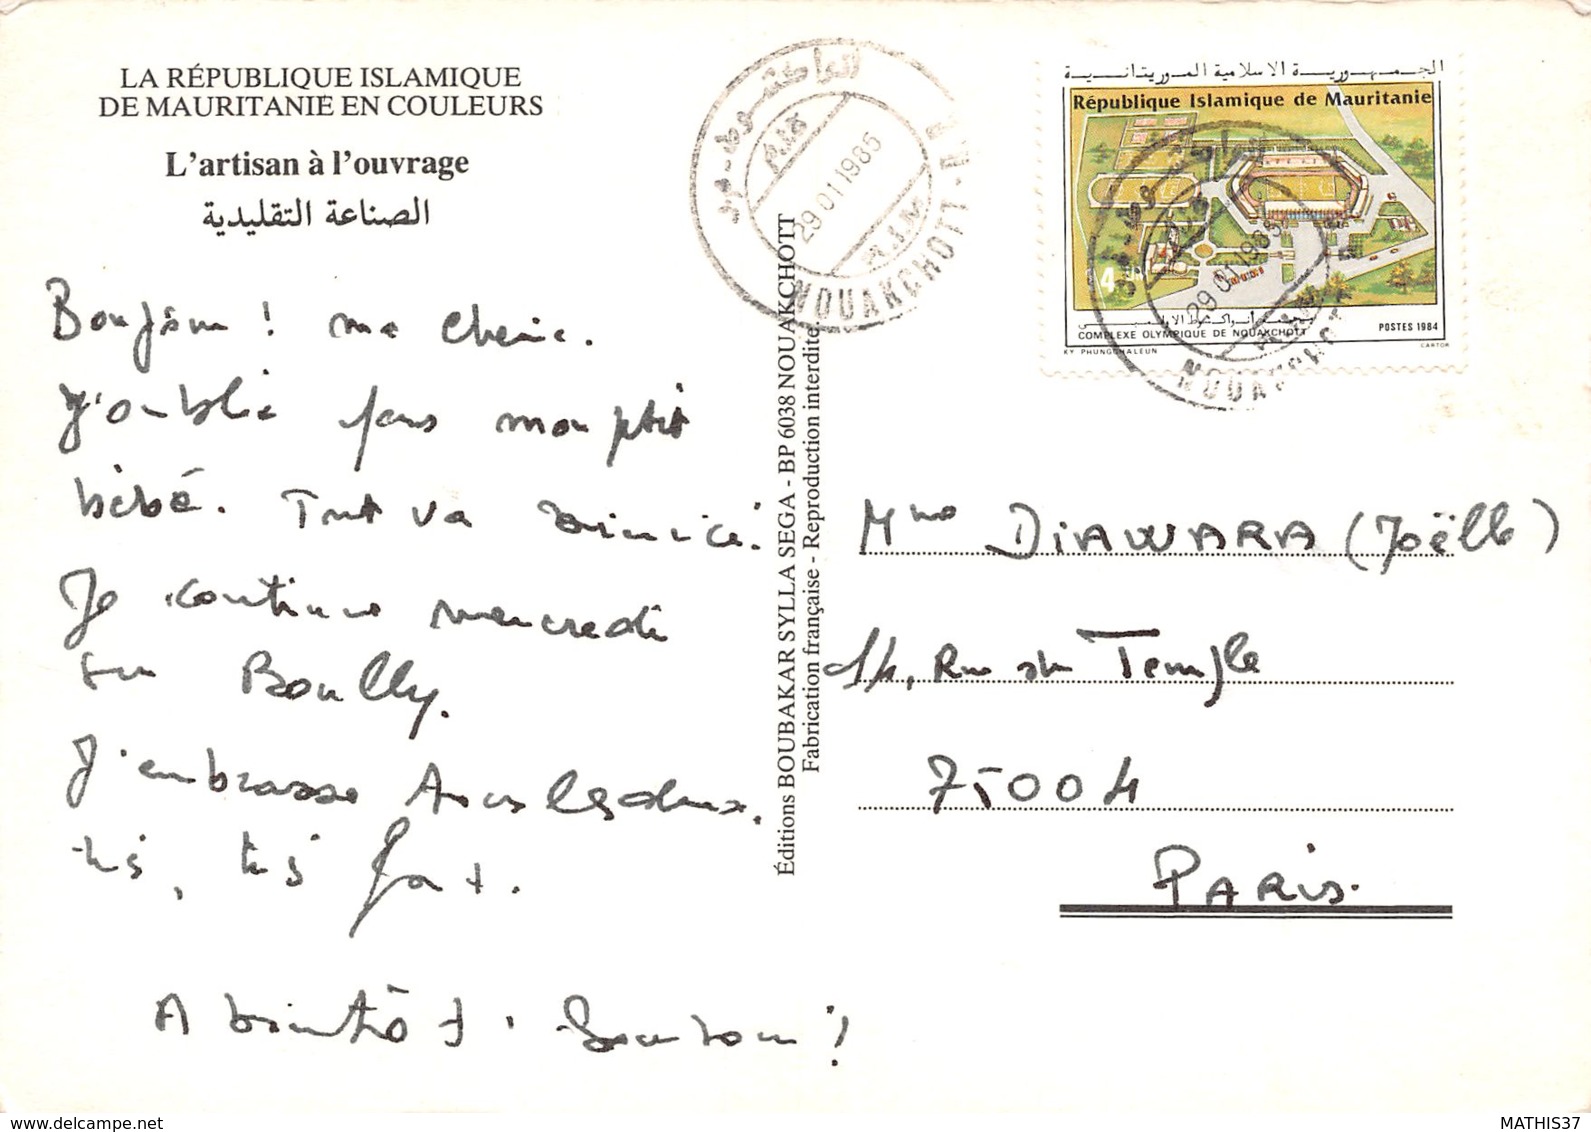 LA RÉPUBLIQUE ISLAMIQUE
DE MAURITANIE EN COULEURS
L'artisan à l'ouvrage
الصناعة التقليدية
Bonjour ! ma cherie.
J'oublie pas mon ptit
bébé. Tout va ici.
Je continue mercredi
sur Boully.
J'embrasse tous les deux.
très, très fort.
A bientôt !
Éditions BOUBAKAR SYLLA SEGA - BP 6038 NOUAKCHOTT
Fabrication française - Reproduction interdite
29 01 1985
R.I.M
NOUAKCHOTT R.P
الجمهورية الاسلامية الموريتانية
République Islamique de Mauritanie
4
COMPLEXE OLYMPIQUE DE NOUAKCHOTT
POSTES 1984
KY PHUNGCHALEUN
CARTOR
29 01 1985
NOUAKCHOTT
Mme DIAWARA (Joëlle)
14, Rue du Temple
75004
PARIS.
MATHIS37